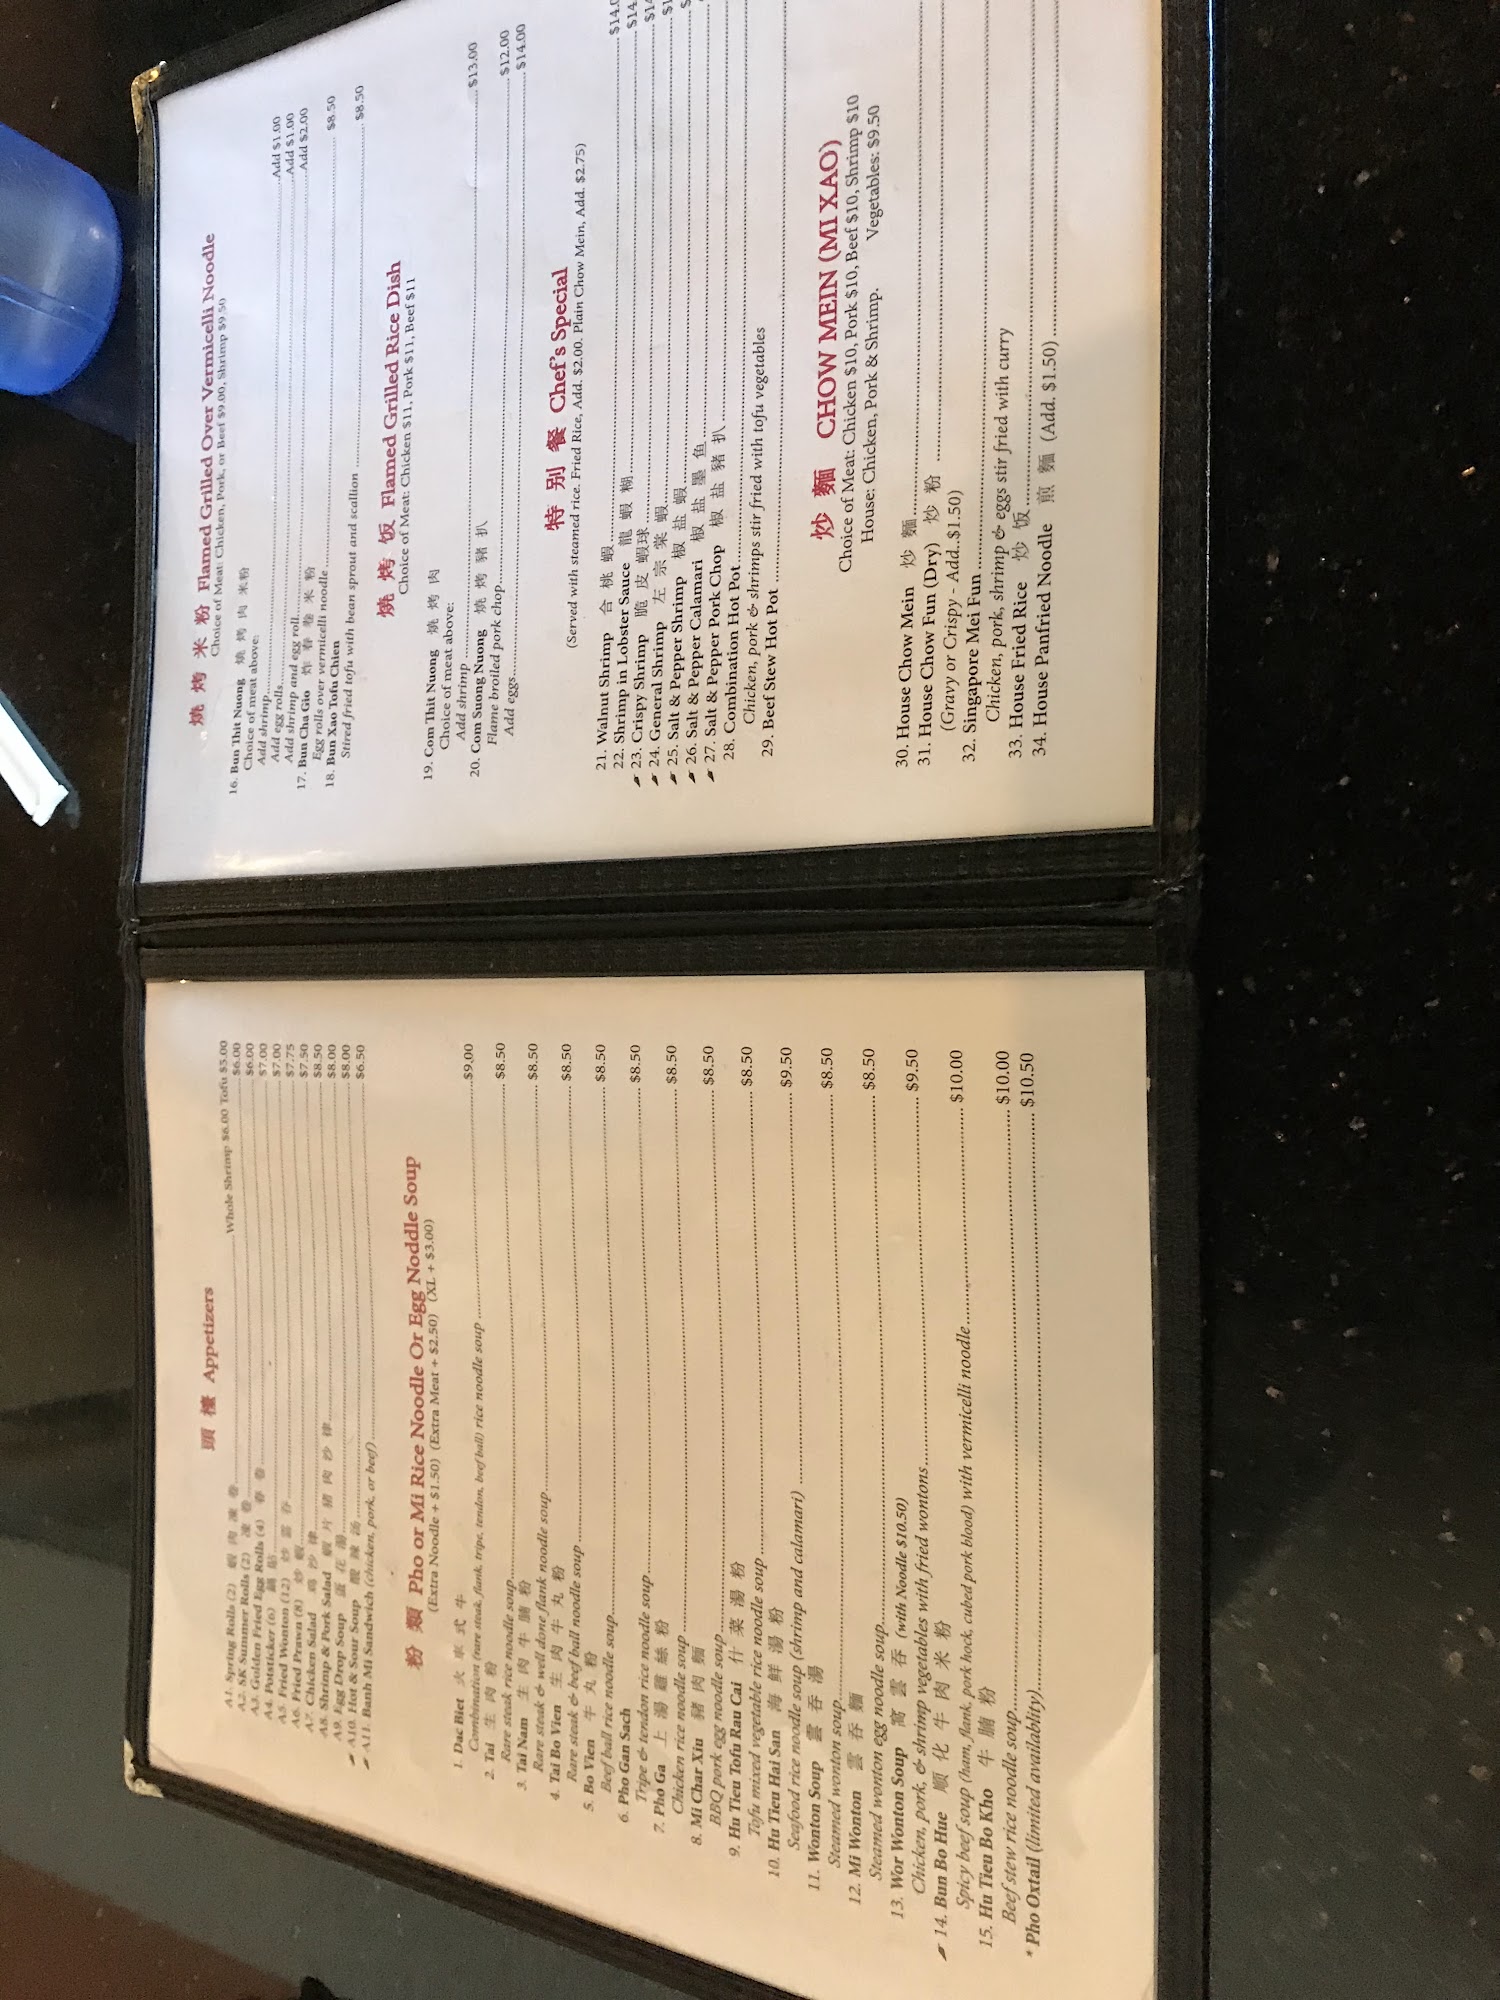 頭檯 Appetizers
A1. Spring Rolls (2) 蝦肉凍卷 Whole Shrimp $6.00 Tofu $5.00
A2. SK Summer Rolls (2) 凍卷 $6.00
A3. Golden Fried Egg Rolls (4) 春卷 $6.00
A4. Potsticker (6) 鍋貼 $7.00
A5. Fried Wonton (12) 炒雲吞 $7.00
A6. Fried Prawn (8) 炒蝦 $7.75
A7. Chicken Salad 鸡沙律 $7.50
A8. Shrimp & Pork Salad 蝦片豬肉沙律 $8.50
A9. Egg Drop Soup 蛋花湯 $8.00
A10. Hot & Sour Soup 酸辣汤 $8.00
A11. Banh Mi Sandwich (chicken, pork, or beef) $6.50
粉類 Pho or Mi Rice Noodle Or Egg Noddle Soup
(Extra Noodle + $1.50) (Extra Meat + $2.50) (XL + $3.00)
1. Dac Biet 火車式牛
Combination (rare steak, flank, tripe, tendon, beef ball) rice noodle soup $9.00
2. Tai 生肉粉
Rare steak rice noodle soup $8.50
3. Tai Nam 生肉牛腩粉
Rare steak & well done flank noodle soup $8.50
4. Tai Bo Vien 生肉牛丸粉
Rare steak & beef ball noodle soup $8.50
5. Bo Vien 牛丸粉
Beef ball rice noodle soup $8.50
6. Pho Gan Sach
Tripe & tendon rice noodle soup $8.50
7. Pho Ga 上湯雞絲粉
Chicken rice noodle soup $8.50
8. Mi Char Xiu 豬肉麵
BBQ pork egg noodle soup $8.50
9. Hu Tieu Tofu Rau Cai 什菜湯粉
Tofu mixed vegetable rice noodle soup $8.50
10. Hu Tieu Hai San 海鮮湯粉
Seafood rice noodle soup (shrimp and calamari) $9.50
11. Wonton Soup 雲吞湯
Steamed wonton soup $8.50
12. Mi Wonton 雲吞麵
Steamed wonton egg noodle soup $8.50
13. Wor Wonton Soup 窩雲吞 (with Noodle $10.50)
Chicken, pork, & shrimp vegetables with fried wontons $9.50
14. Bun Bo Hue 順化牛肉米粉
Spicy beef soup (ham, flank, pork hock, cubed pork blood) with vermicelli noodle $10.00
15. Hu Tieu Bo Kho 牛腩粉
Beef stew rice noodle soup $10.00
* Pho Oxtail (limited availablity) $10.50
燒烤米粉 Flamed Grilled Over Vermicelli Noodle
Choice of Meat: Chicken, Pork, or Beef $9.00, Shrimp $9.50
16. Bun Thit Nuong 燒烤肉米粉
Choice of meat above:
Add shrimp Add $1.00
Add egg rolls Add $1.00
Add shrimp and egg roll Add $2.00
17. Bun Cha Gio 炸春卷米粉
Egg rolls over vermicelli noodle $8.50
18. Bun Xao Tofu Chien
Stired fried tofu with bean sprout and scallion $8.50
燒烤饭 Flamed Grilled Rice Dish
Choice of Meat: Chicken $11, Pork $11, Beef $11
19. Com Thit Nuong 燒烤肉
Choice of meat above:
Add shrimp $13.00
20. Com Suong Nuong 燒烤豬扒
Flame broiled pork chop $12.00
Add eggs $14.00
特别餐 Chef's Special
(Served with steamed rice. Fried Rice, Add. $2.00. Plain Chow Mein, Add. $2.75)
21. Walnut Shrimp 合桃蝦 $14.0
22. Shrimp in Lobster Sauce 龍蝦糊 $14.
23. Crispy Shrimp 脆皮蝦球 $14
24. General Shrimp 左宗棠蝦 $1
25. Salt & Pepper Shrimp 椒盐蝦 $
26. Salt & Pepper Calamari 椒盐墨鱼
27. Salt & Pepper Pork Chop 椒盐豬扒
28. Combination Hot Pot
Chicken, pork & shrimps stir fried with tofu vegetables
29. Beef Stew Hot Pot
炒麵 CHOW MEIN (MI XAO)
Choice of Meat: Chicken $10, Pork $10, Beef $10, Shrimp $10
House: Chicken, Pork & Shrimp. Vegetables: $9.50
30. House Chow Mein 炒麵
31. House Chow Fun (Dry) 炒粉
(Gravy or Crispy - Add..$1.50)
32. Singapore Mei Fun
Chicken, pork, shrimp & eggs stir fried with curry
33. House Fried Rice 炒饭
34. House Panfried Noodle 煎麵 (Add. $1.50)